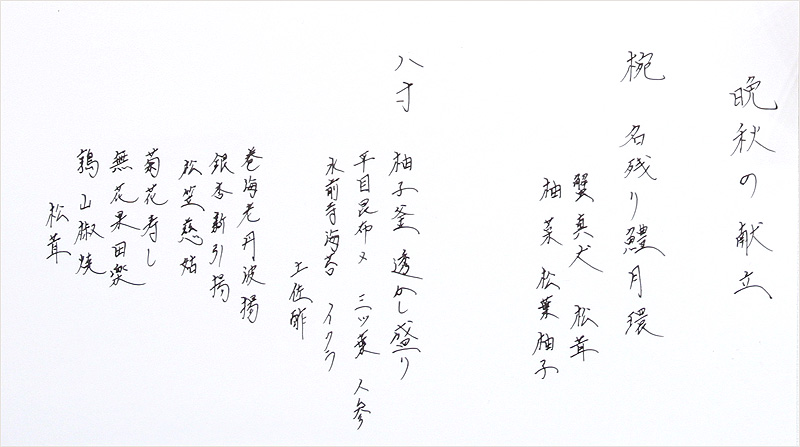 晩秋の献立
椀 名残り鱧月環
蟹真丈 松茸
柚菜 松葉柚子
八寸 柚子釜 透かし盛り
平目昆布〆 三ツ葉 人参
水前寺海苔 イクラ
土佐酢
巻海老丹波揚
銀杏新引揚
松笠慈姑
菊花寿し
無花果田楽
鶉山椒焼
松茸